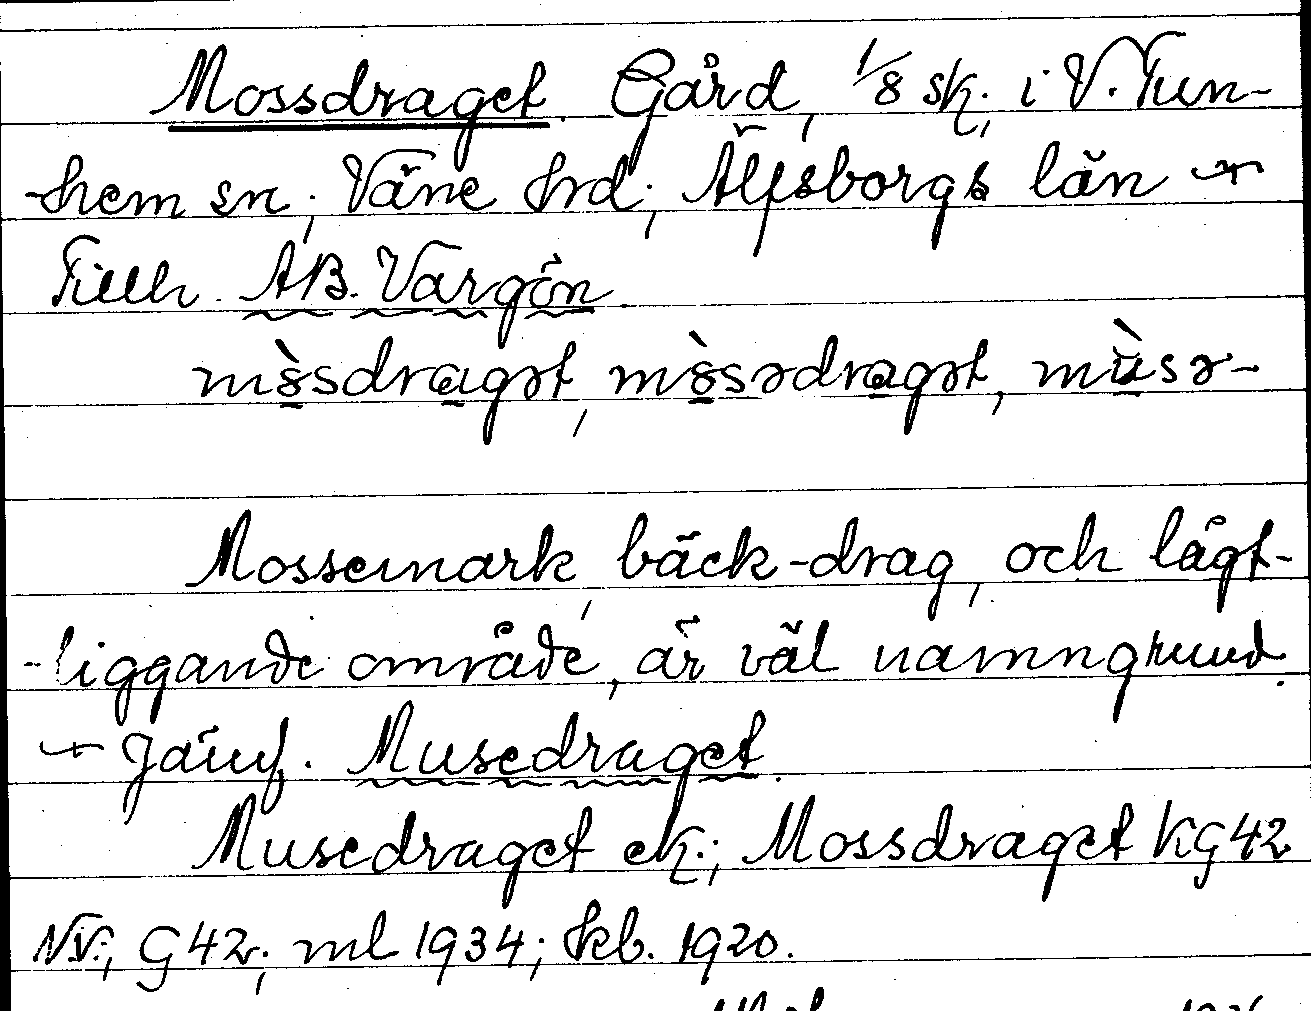 Mossdraget. Gård, 1/8 sk; i V. Tun-
-hem sn; Väne hrd; Älfsborgs län -
Tillh. AB. Vargön.
mòsdragət, mòsədragət, mùsə-
Mossemark, bäck-drag, och lågt-
-liggande område, är väl namngrund.
- Jämf. Musedraget.
Musedraget ek.; Mossdraget KG42
NV.; G42; ml 1934; kb. 1920.